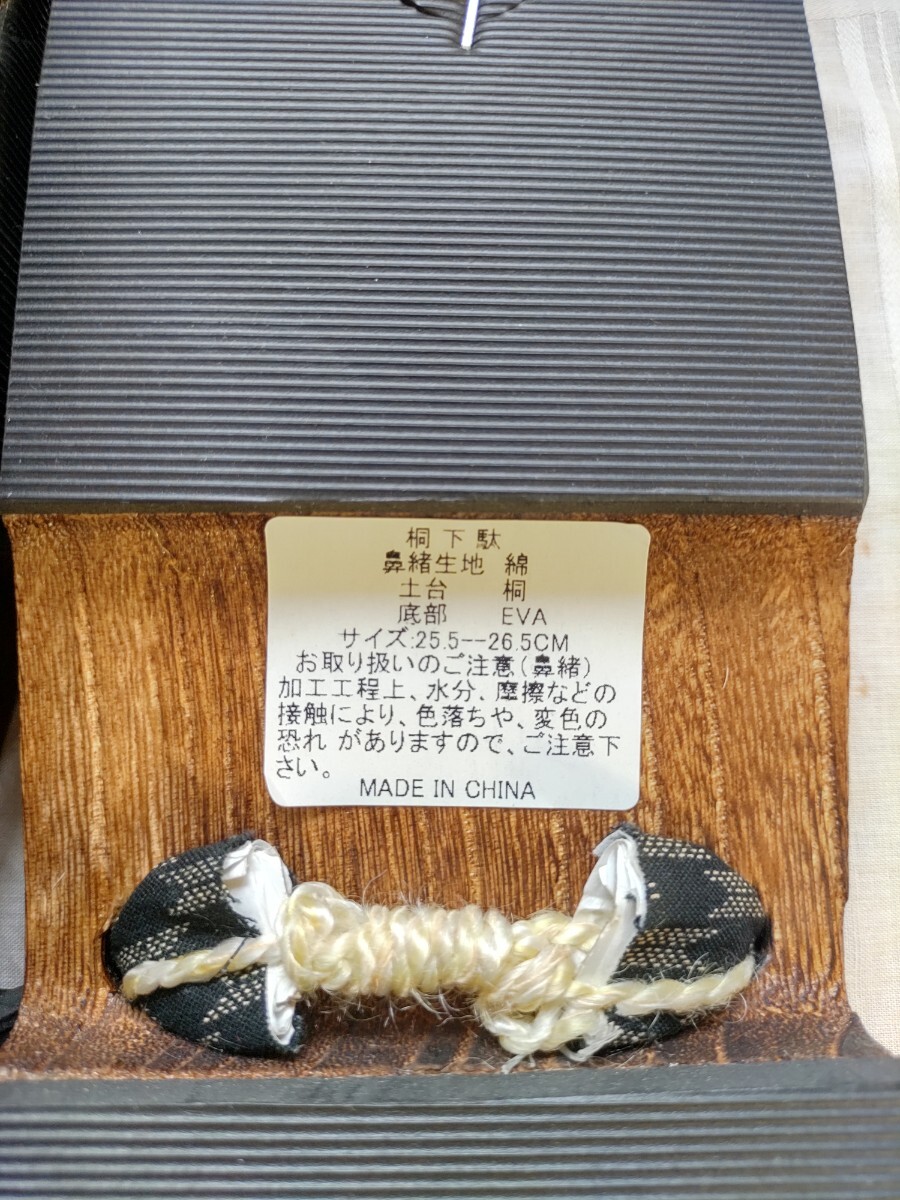 桐下駄
鼻緒生地 綿
土台 桐
底部 EVA
サイズ:25.5--26.5CM
お取り扱いのご注意(鼻緒)
加工工程上、水分、摩擦などの
接触により、色落ちや、変色の
恐れ がありますので、ご注意下
さい。
MADE IN CHINA